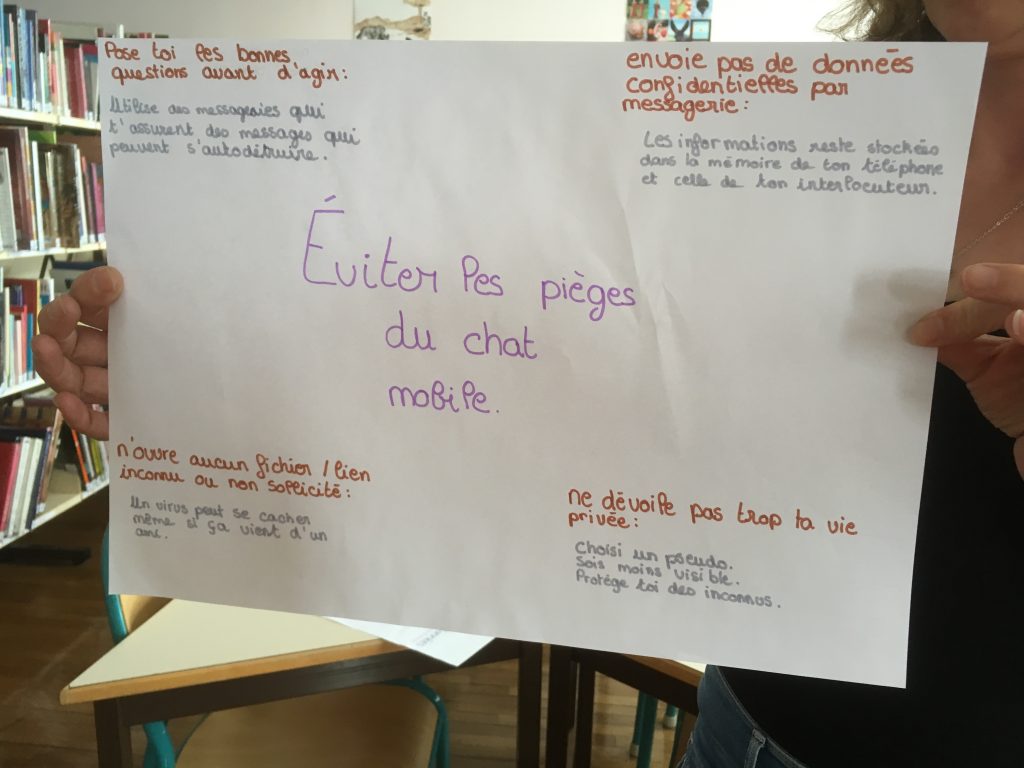 Pose toi les bonnes
questions avant d'agir:
Utilise des messageries qui
t'assurent des messages qui
peuvent s'autodétruire.
envoie pas de données
confidentielles par
messagerie:
Les informations reste stockées
dans la mémoire de ton téléphone
et celle de ton interlocuteur.
Éviter les pièges
du chat
mobile.
n'ouvre aucun fichier / lien
inconnu ou non sollicité:
Un virus peut se cacher
même si ça vient d'un
ami.
ne dévoile pas trop ta vie
privée:
Choisi un pseudo.
Sois moins visible.
Protège toi des inconnus.